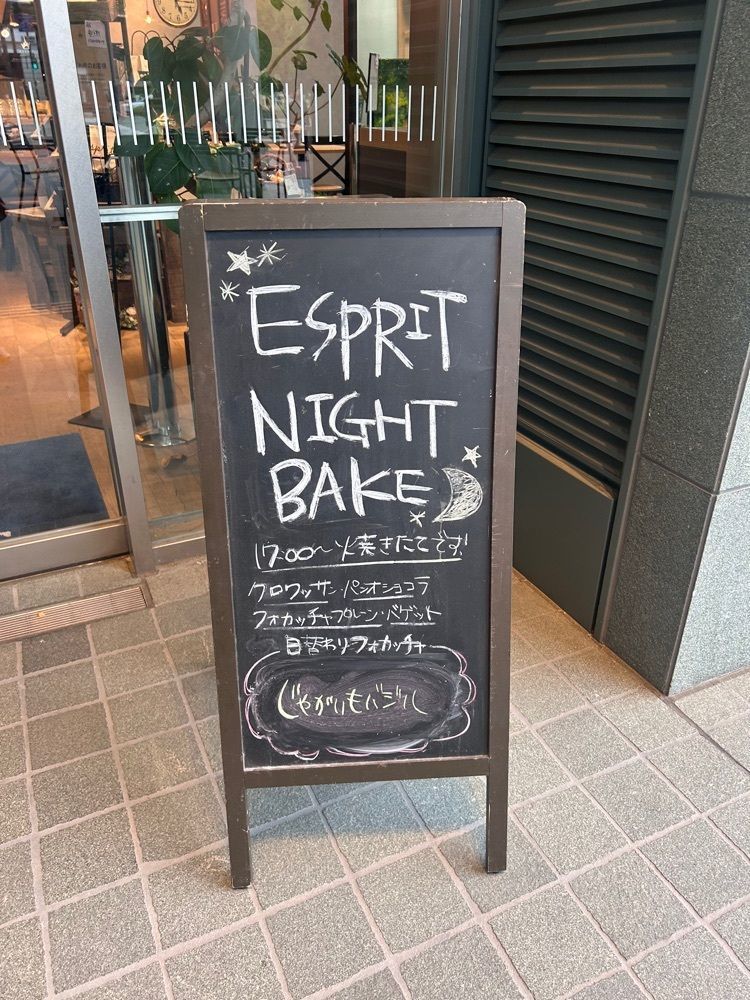 ESPRIT
NIGHT
BAKE
17:00〜焼きたてです!
クロワッサン・パンオショコラ
フォカッチャプレーン・バゲット
日替わりフォカッチャ
じゃがいもバジル